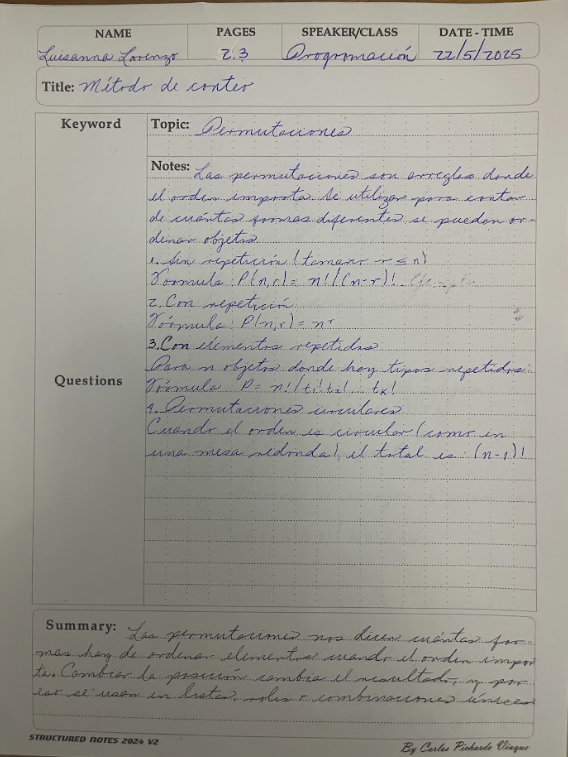 NAME PAGES SPEAKER/CLASS DATE - TIME
Luisanna Lorenzo 2.3 Programación 22/5/2025
Title: Método de conteo
Keyword
Topic: Permutaciones
Notes: Las permutaciones son arreglos donde
el orden importa. Se utilizan para contar
de cuántas formas diferentes se pueden or-
denar objetos.
1. Sin repetición (tamaño r ≤ n)
Fórmula: P(n,r) = n!/(n-r)! Ejemplo
2. Con repetición
Fórmula: P(n,r) = nʳ
3. Con elementos repetidos
Para n objetos donde hay tipos repetidos:
Questions
Fórmula P = n!/t₁! t₂! ... tₖ!
4. Permutaciones circulares
Cuando el orden es circular (como en
una mesa redonda), el total es: (n-1)!
Summary: Las permutaciones nos dicen cuántas for-
mas hay de ordenar elementos cuando el orden impor
ta. Cambiar la posición cambia el resultado, y por
eso se usan en listas, roles o combinaciones únicas
STRUCTURED NOTES 2024 V2
By Carlos Pichardo Vinque